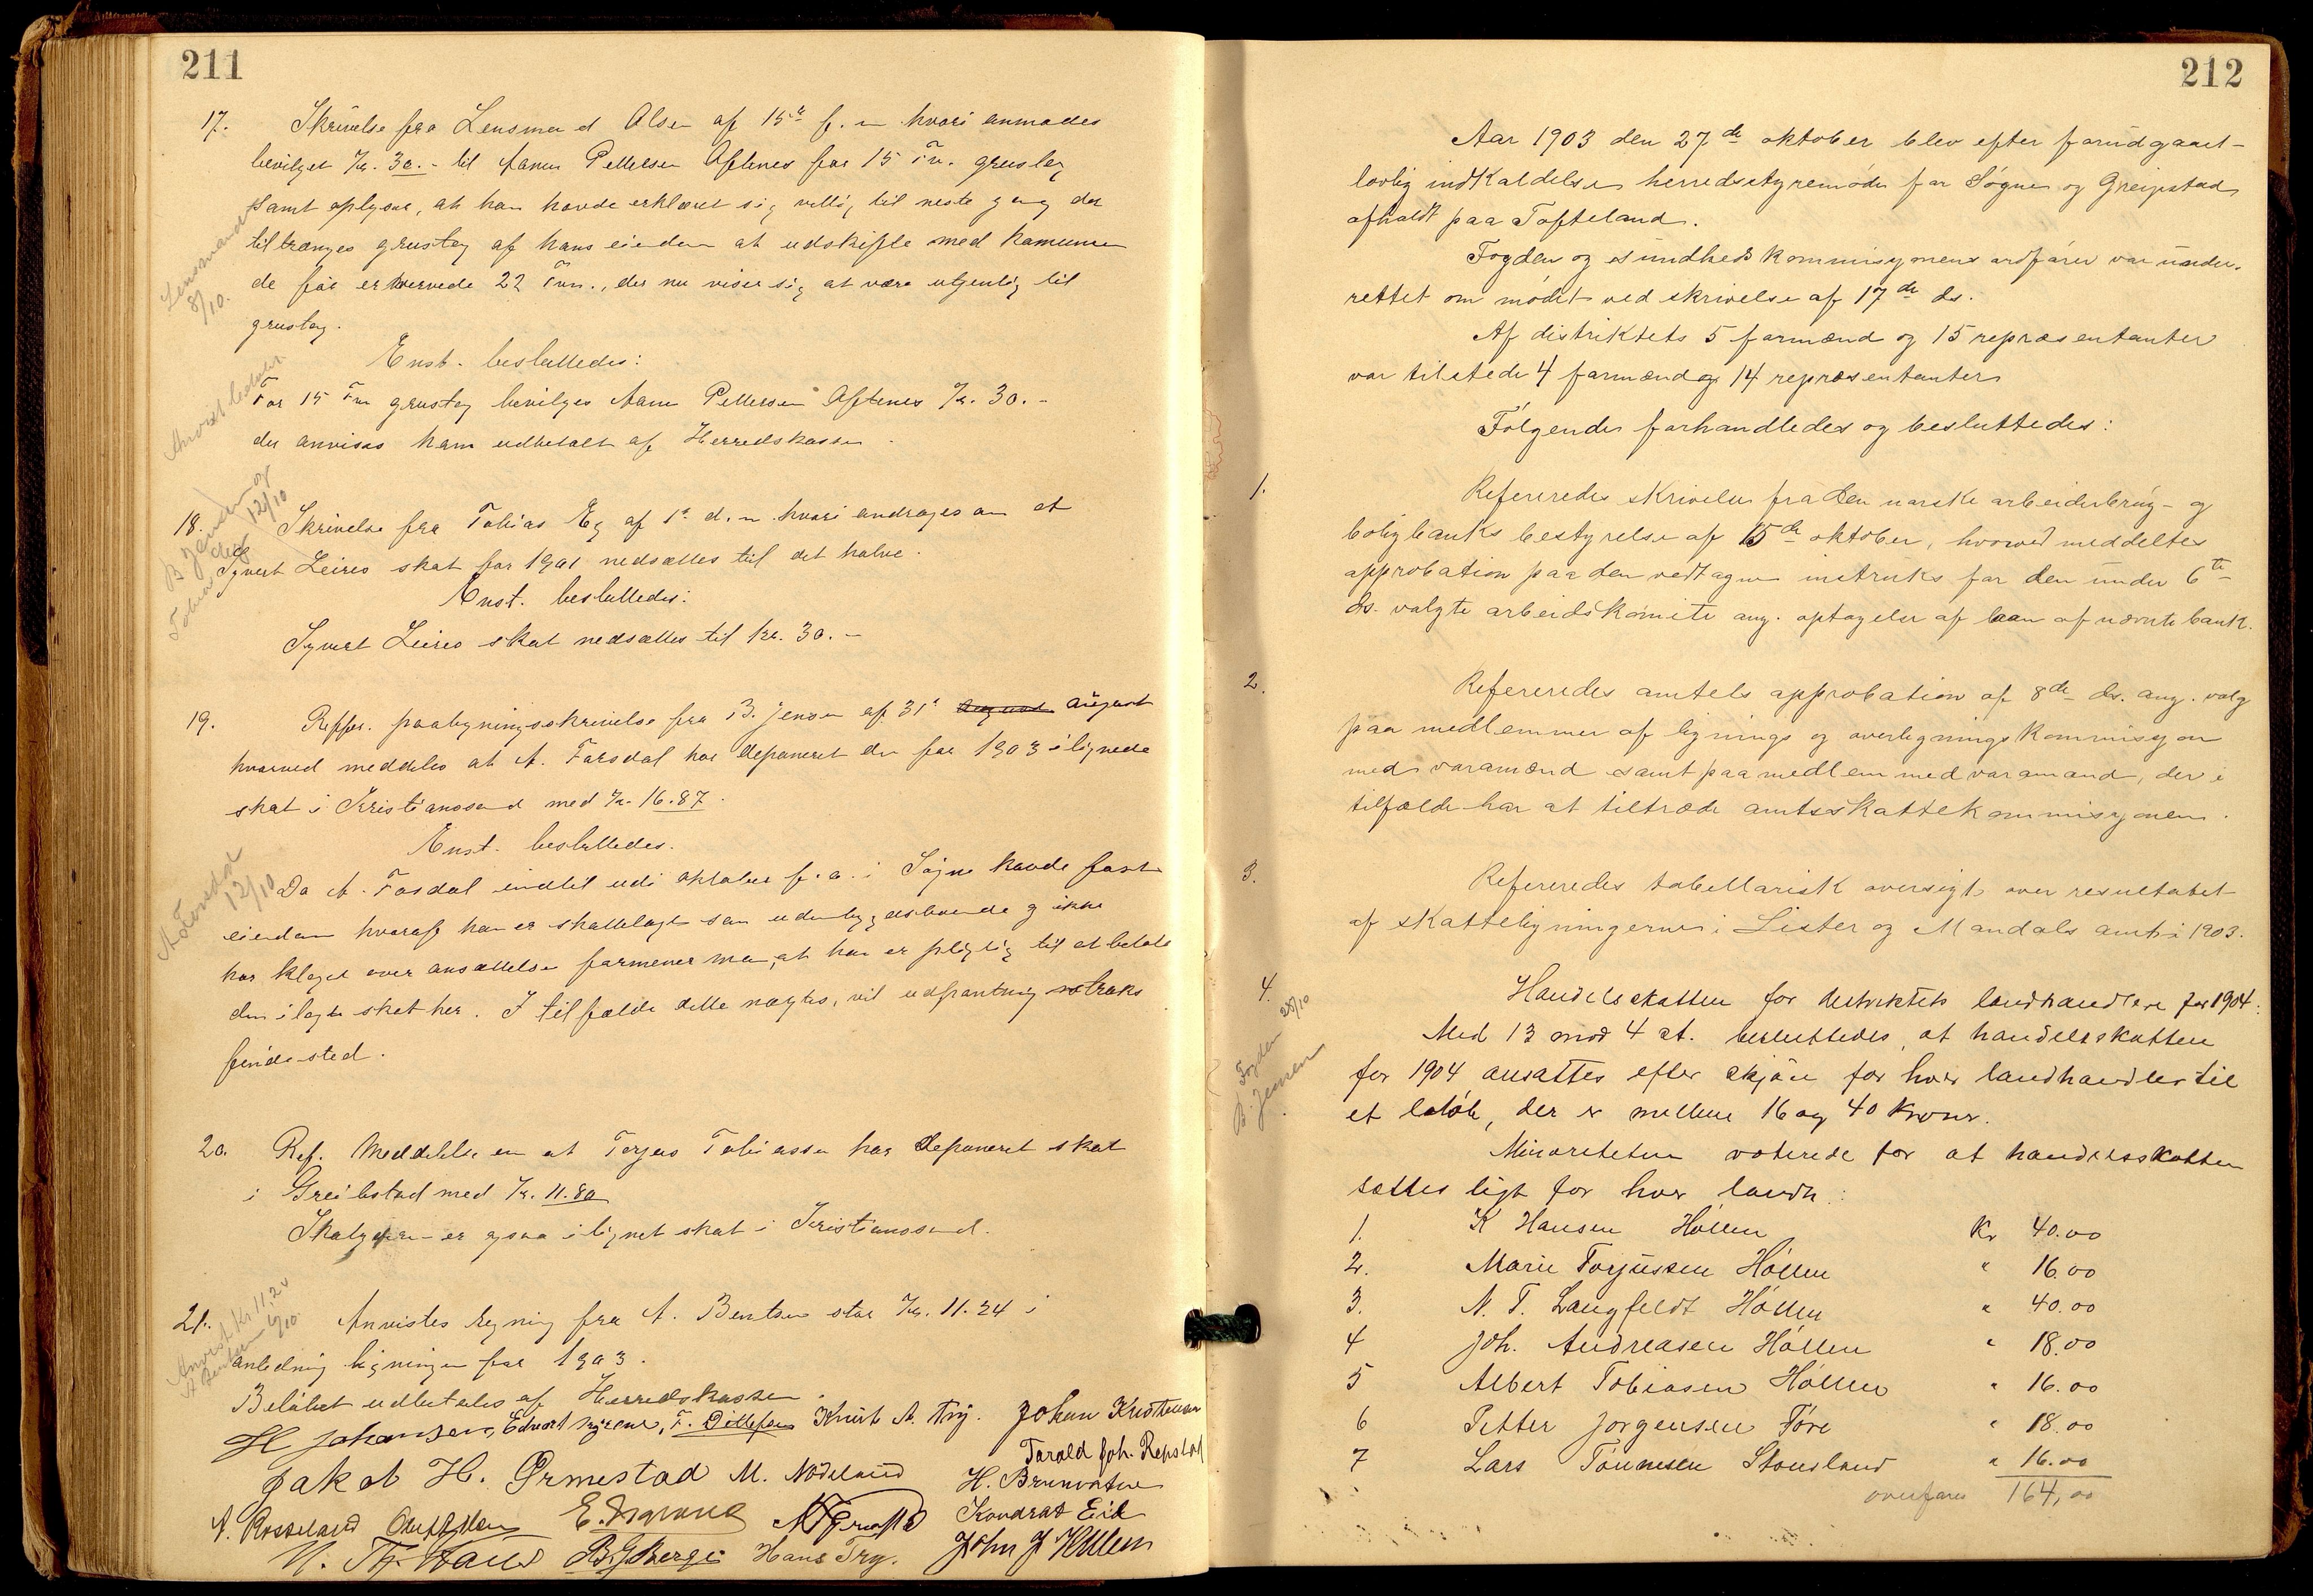 211
17. Skrivelse fra Lensmand Olsen af 15de f. m. hvori anmodes
bevilget Kr. 30.- til Aanen Pettersen Aftenes for 15 Fv. grustag
samt oplyser, at han havde erklæret sig villig til neste gang der
tiltrænges grustag af hans eiendom at udskifte med kamunen
de før erhvervede 22 Fvn., der nu viser sig at være utjenlig til
grustag.
Lensmanden
8/10.
Enst. besluttedes:
For 15 Fvn grustag bevilges Aanen Pettersen Aftenes Kr. 30.-
der anvises ham udbetalt af Herredskassen.
18. Skrivelse fra Tobias Eg af 1ste d. m. hvori andrages om at
Syvert Leires skat for 1901 nedsættes til det halve.
B Jensen og
Tobias Eeg
12/10
Enst. besluttedes:
Syvert Leires skat nedsættes til kr. 30.-
19. Reffer. paategningsskrivelse fra B. Jensen af 31te august august
hvorved meddeles at A. Farsdal har deponeret den for 1903 ilignede
skat i Kristianssand med Kr. 16.87.
Enst. besluttedes.
Da A. Fasdal indtil udi oktober f. a. i Søgne havde fast
eiendom hvoraf han er skattelagt som udenbygdsboende og ikke
har klaget over ansættelsen formener man, at han er pligtig til at betale
den ilagte skat her. I tilfælde dette nægtes, vil udpantning straks
finde sted.
A Forsdal
12/10
20. Ref. Meddelelse om at Terjes Tobiassen har deponeret skat
i Greibstad med Kr. 11.80
Skatyderen er ogsaa ilignet skat i Kristianssand.
21. Anvistes regning fra A. Bentsen stor Kr. 11.24 i
anledning ligningen for 1903.
Beløbet udbetales af Herredskassen.
Anvist Kr 11,24
A Bentsen 9/10.
H Johansen, F. Ditlefsen Knut A. Try. Johan Kristensen
Tarald Joh. Repstad
Jakob H. Ormestad M. Nødeland H. Brunvatne
A. Rosseland Kondrat Eik
B. G. Berge Hans Try. John J Kullem
212
Aar 1903 den 27de oktober blev efter forudgaaet
lovlig indkaldelse herredsstyremøde for Søgne og Greipstad
afholdt paa Tofteland.
Fogden og sundhedskommisjonens ordfører var under-
rettet om mødet ved skrivelse af 17de ds.
Af distriktets 5 formænd og 15 repræsentanter
var tilstede 4 formænd og 14 repræsentanter
Følgende forhandledes og besluttedes:
1. Refereredes skrivelse fra den norske arbeiderbrug- og
boligbanks bestyrelse af 15de oktober, hvorved meddeltes
approbation paa den vedtagne instruks for den under 6te
ds. valgte arbeidskomite ang. optagelse af laan af nævnte bank.
2. Refereredes amtets approbation af 8de ds. ang. valg
paa medlemmer af lignings og overligningskommisjon
med varamænd samt paa medlem med varamand, der i
tilfælde har at tiltræde amtsskattekommisjonen.
3. Refereredes tabellarisk oversigt over resultatet
af skatteligningerne i Lister og Mandals amt i 1903.
4. Handelsskatten for distriktets landhandlere for 1904:
Med 13 mod 4 st. besluttedes, at handelsskatten
for 1904 ansattes efter skjøn for hver landhandler til
et beløb, der er mellem 16 og 40 kroner.
Fogden 28/10
B. Jensen
Minoriteten voterede for at handelsskatten
sættes ligt for hver landh.:
1. K Hansen Høllen Kr 40.00
2. Marie Torjussen Høllen " 16.00
3. N. T. Langfeldt Høllen " 40.00
4 Joh. Andreasen Høllen " 18.00
5 Albert Tobiasen Høllen " 16.00
6 Petter Jørgensen Føre " 18.00
7 Lars Tønnesen Stausland " 16.00
overføres 164,00